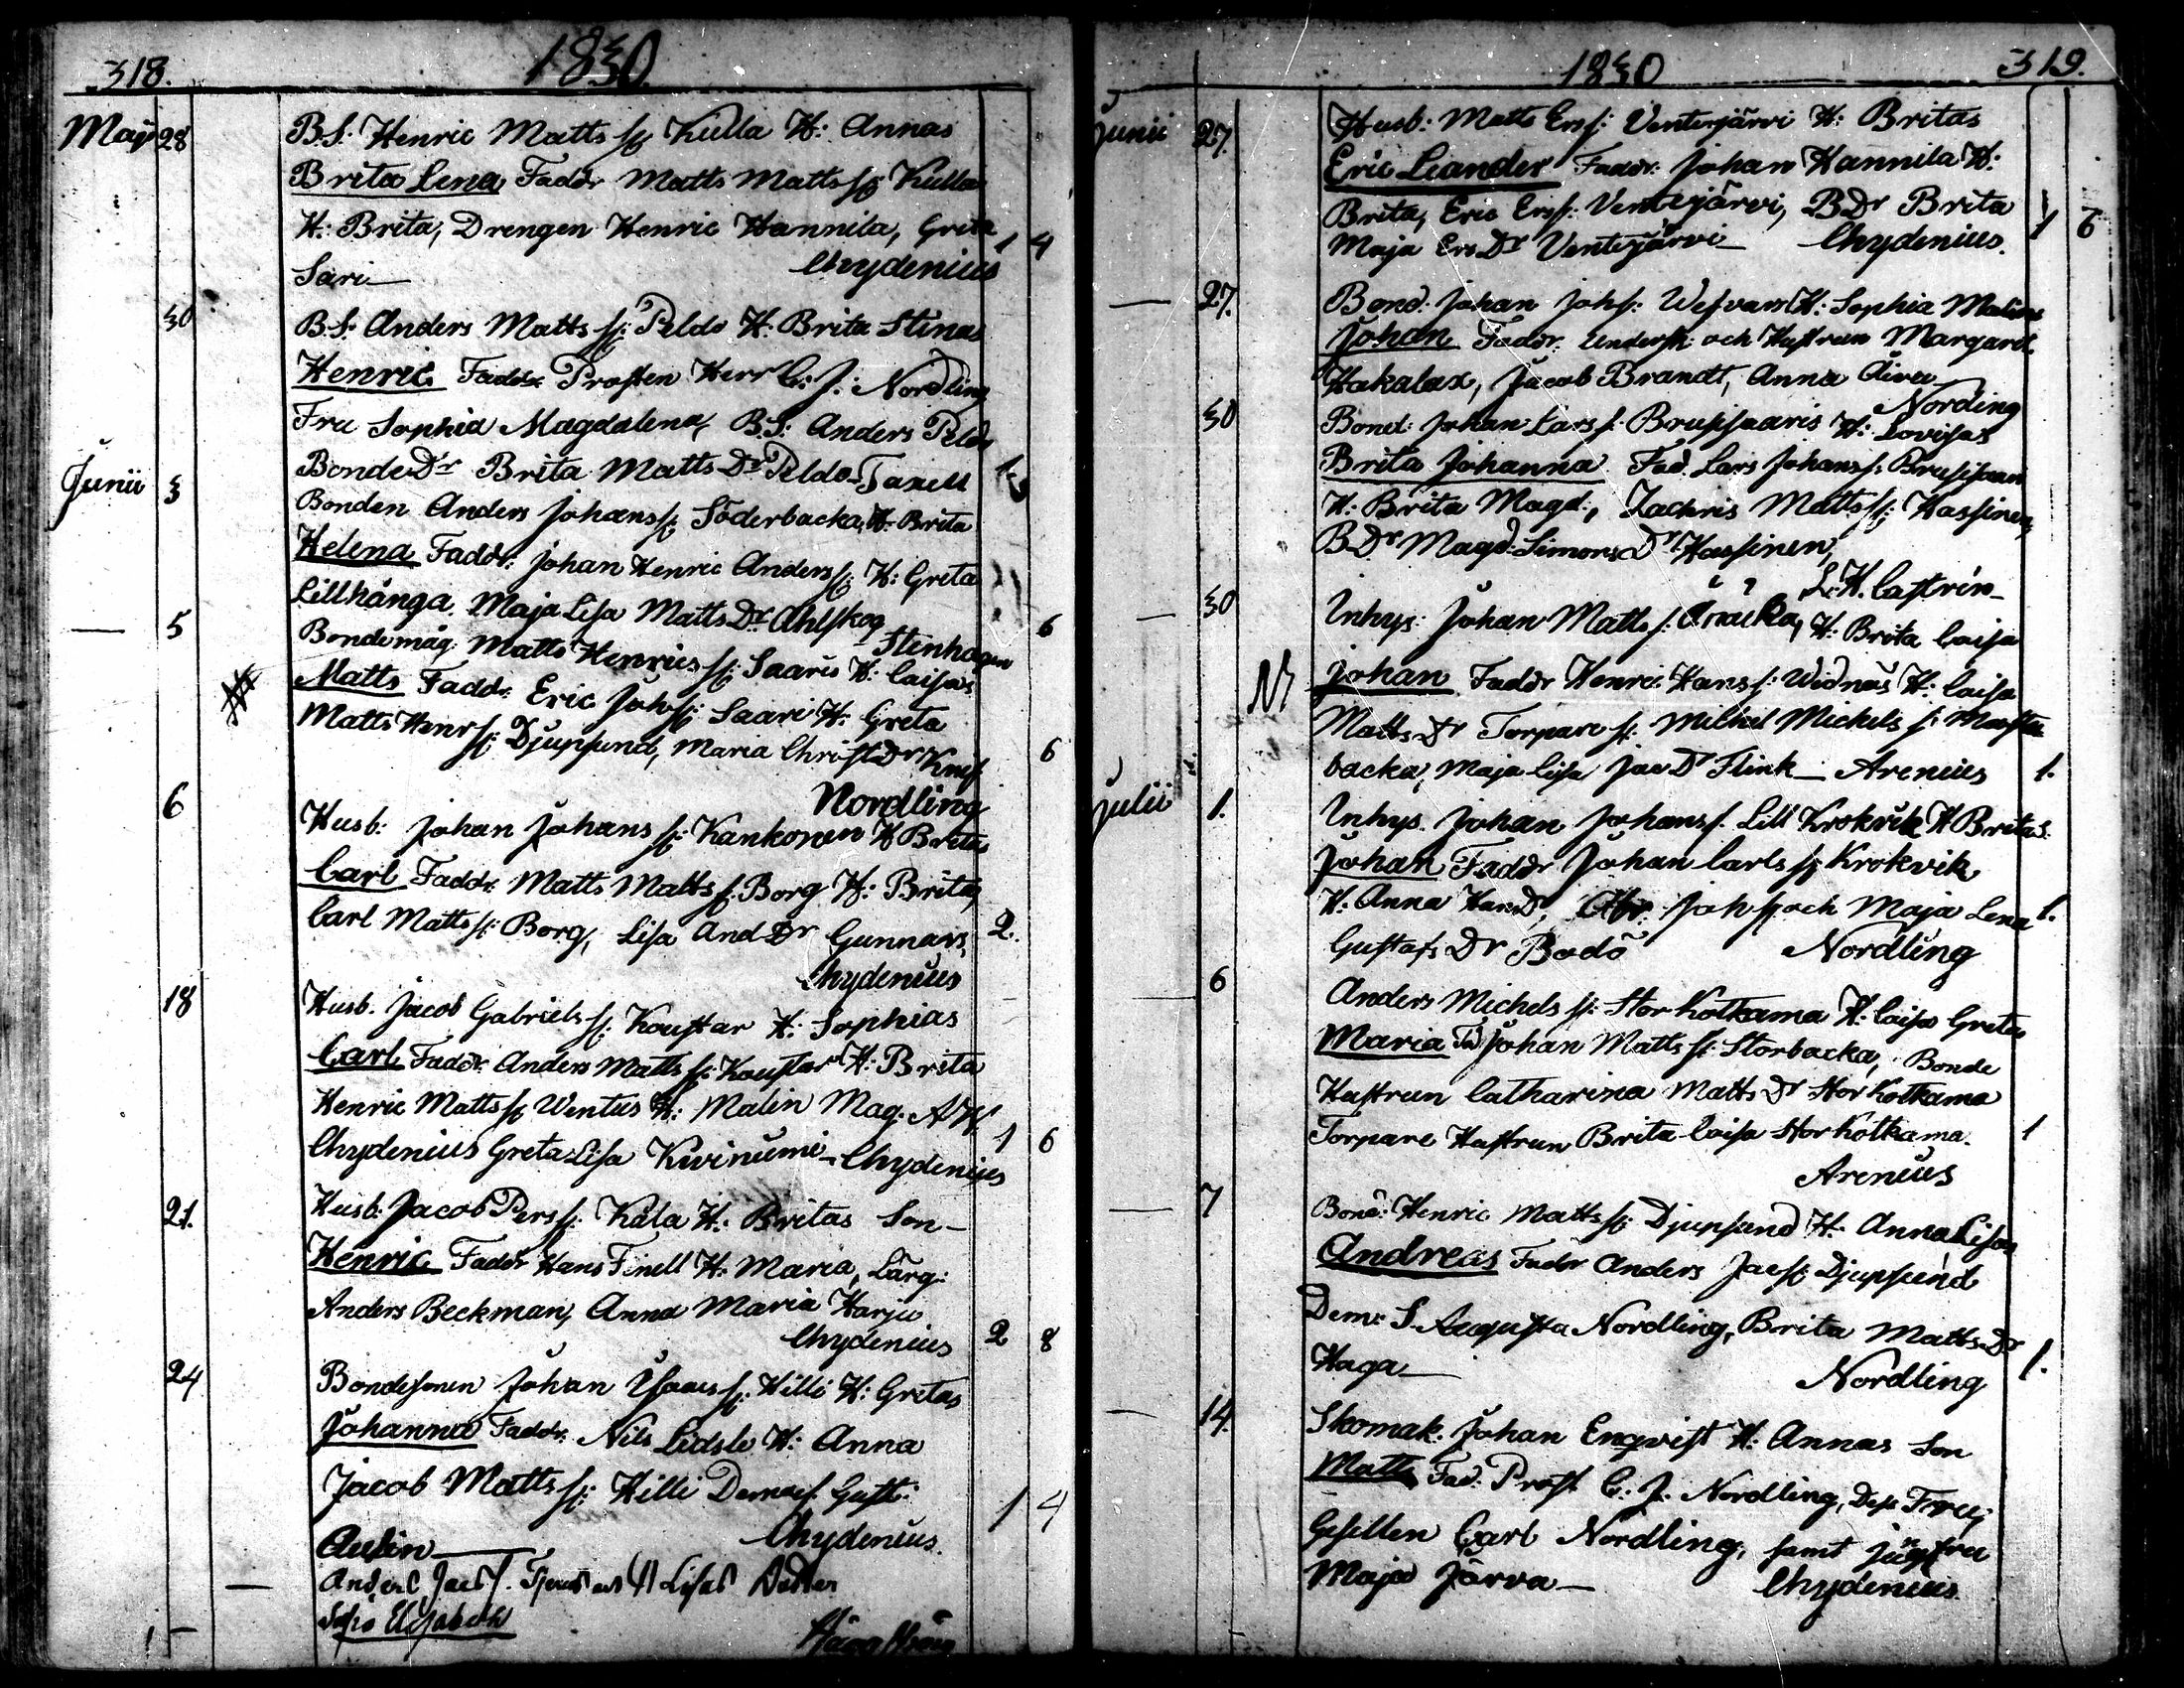 318.
1830.
Maji 28 B.S: Henric Matts ss: Kulla H: Annas
Brita Lena Faddr Matts Matts ss: Kulla
H: Brita, Drengen Henric Hannila, Greta 1 4
Sari— Chydenius
30 B.S: Anders Matts ss: Peldo H: Brita Stinas
Henric Faddr. Prosten Herr C: J: Nordling
Fru Sophia Magdalena, B.S: Anders Peldo
Bonde Dr Brita Matts Dr Peldo— Taxell
Junii 3 Bonden Anders Johans ss: Söderbacka, H: Brita
Helena Faddr: Johan Henric Anders ss: H: Greta
Lillhånga. Maja Lisa Matts Dr Ahlskog 6
Stenhagen
— 5 Bondemåg Matts Henrics ss: Saaris H: Caisas
Matts Faddr. Eric Joh ss: Saari H: Greta
Matts Henr ss: Djupsund, Maria Christ Dr 6
Nordling
6 Husb: Johan Johans ss: Kankonen H Britas
Carl Faddr. Matts Matts s: Borg H: Brita,
Carl Matts ss: Borg, Lisa And Dr Gunnars, 2.
Chydenius
18 Husb. Jacob Gabriels s: Koustar H: Sophias
Carl Faddr. Anders Matts ss: Koustar H: Brita
Henric Matts ss: Wentus H: Malin Mag. A H.
Chydenius Greta Lisa Kivinumi— Chydenius 1 6
21. Husb: Jacob Pers s: Kåla H: Britas Son—
Henric Faddr Hans Finell H: Maria, Lärg:
Anders Beckman, Anna Maria Harju
Chydenius 2 8
24 Bondesonen Johan Isaacs s: Hilli H: Gretas
Johanna Faddr. Nils Lidsle H: Anna
Jacob Matts ss: Hilli Demois. Gust: 1 4
Aulin— Chydenius.
— Anders Jacs s. H Lisas
Sofia Elisabeth
1830
319.
Junii 27. Husb: Matts Ers s: Ventejärvi H: Britas
Eric Leander Faddr: Johan Hannila H:
Brita, Eric Ers s: Ventejärvi, B Dr Brita 1 6
Maja Ers Dr Ventejärvi— Chydenius.
— 27. Bond. Johan Johs: H: Sophia Malins
Johan Faddr. och Hustrun Margaret.
Hakalax, Jacob Brandt, Anna
Nording
30 Bond: Johan Lars s: H: Lovisas
Brita Johanna Fad. Lars Johans s:
H: Brita Magd:, Zachris Matts ss: Hassinen,
B Dr Magd: Simons Dr Hassinen,
L. H. Castrén—
— 30 Inhys: Johan Matts s: H: Brita Caisa
Johan Faddr Henric Hans s: Widnäs H: Caisa
Matts Dr Torpare s: Michel Mickels s:
backa, Maja Lisa Jac Dr Flink— Arenius 1.
Julii 1. Inhys. Johan Johans s. Lill Krokvik H Britas.
Johan Faddr Johan Carls ss: Krokvik
H: Anna Han D, Abr. Joh ss och Maja Lena 1.
Gustafs Dr Bodö Nordling
6 Anders Michels ss: Stor Kotkama H: Caisa Gretas
Maria Fad Johan Matts s: Storbacka, Bonde
Hustrun Catharina Matts Dr Stor Kotkama
Torpare Hustrun Brita Caisa Stor Kotkama. 1
Arenius
— 7 Bond: Henric Matts ss: Djupsund H: Anna Lisas
Andreas Faddr Anders Jac ss: Djupsund
Dem: S. Augusta Nordling, Brita Matts Dr
Haga— Nordling 1.
— 14. Skomak: Johan Enqvist H: Annas Son
Matts Fad: Prost C: J: Nordling, Dess Fru,
Gesellen Carl Nordling, samt jungfru
Maja Järva— Chydenius.